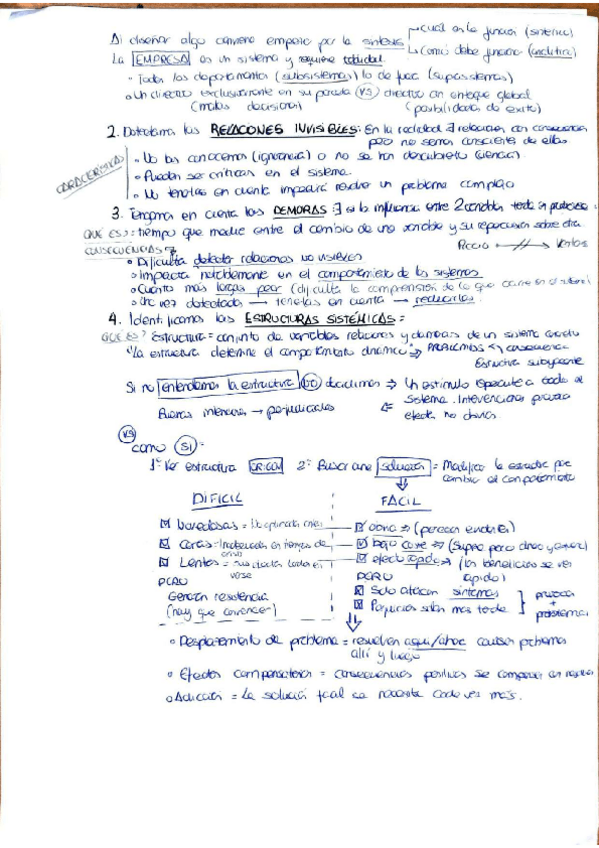 Al diseñar algo conviene empezar por la síntesis → cuál es la función (sintética)
→ cómo debe funcionar (analítica)
La EMPRESA es un sistema y requiere totalidad
· Todos los departamentos (subsistemas) lo de fuera (suprasistemas)
· Un directivo exclusivamente en su parcela VS directivo con enfoque global
(malas decisiones) (posibilidades de éxito)
2. Detectamos las RELACIONES INVISIBLES: En la realidad ∃ relaciones con consecuencias
pero no somos conscientes de ellas
CARACTERÍSTICAS
· No las conocemos (ignorancia) o no se han descubierto (ciencia).
· Pueden ser críticas en el sistema.
· No tenerlas en cuenta impedirá resolver un problema complejo
3. Tengamos en cuenta las DEMORAS: ∃ si la influencia entre 2 variables tarda en producirse
QUÉ ES: tiempo que media entre el cambio de una variable y su repercusión sobre otra
CONSECUENCIAS Precio Ventas
· Dificulta detectar relaciones no visibles
· Impacta notablemente en el comportamiento de los sistemas
· Cuanto más largas peor (dificulta la comprensión de lo que ocurre en el sistema)
· Una vez detectadas → tenerlas en cuenta → reducirlas.
4. Identificamos las ESTRUCTURAS SISTÉMICAS:
QUÉ ES? Estructura = conjunto de variables relaciones y demoras de un sistema
"La estructura determina el comportamiento dinámico" PROBLEMAS consecuencia
Estructura subyacente
Si no entendemos la estructura NO decidimos ⇒ Un estímulo repercute a todo el
sistema. Intervenciones provoca
Fuerzas internas → perjudiciales ⇐ efectos no obvios.
VS
como SI:
1º Ver estructura ORIGEN 2º Buscar una solución = Modificar la estructura para
cambiar el comportamiento
DIFICIL FACIL
Obvia ⇒ (parecen evidentes)
Caras = bajo coste ⇒ (supone poco dinero y esfuerzo)
Lentas = efecto rápido ⇒ (los beneficios se ven
verse rápido)
PERO PERO
Generan resistencia Solo atacan síntomas
(hay que convencer) Perjuicios salen más tarde
· Desplazamiento de problema = resuelven aquí/ahora causan problemas
allí y luego
· Efectos compensatorios = consecuencias positivas se compensan con
· Adicción = La solución fácil se necesita cada vez más.